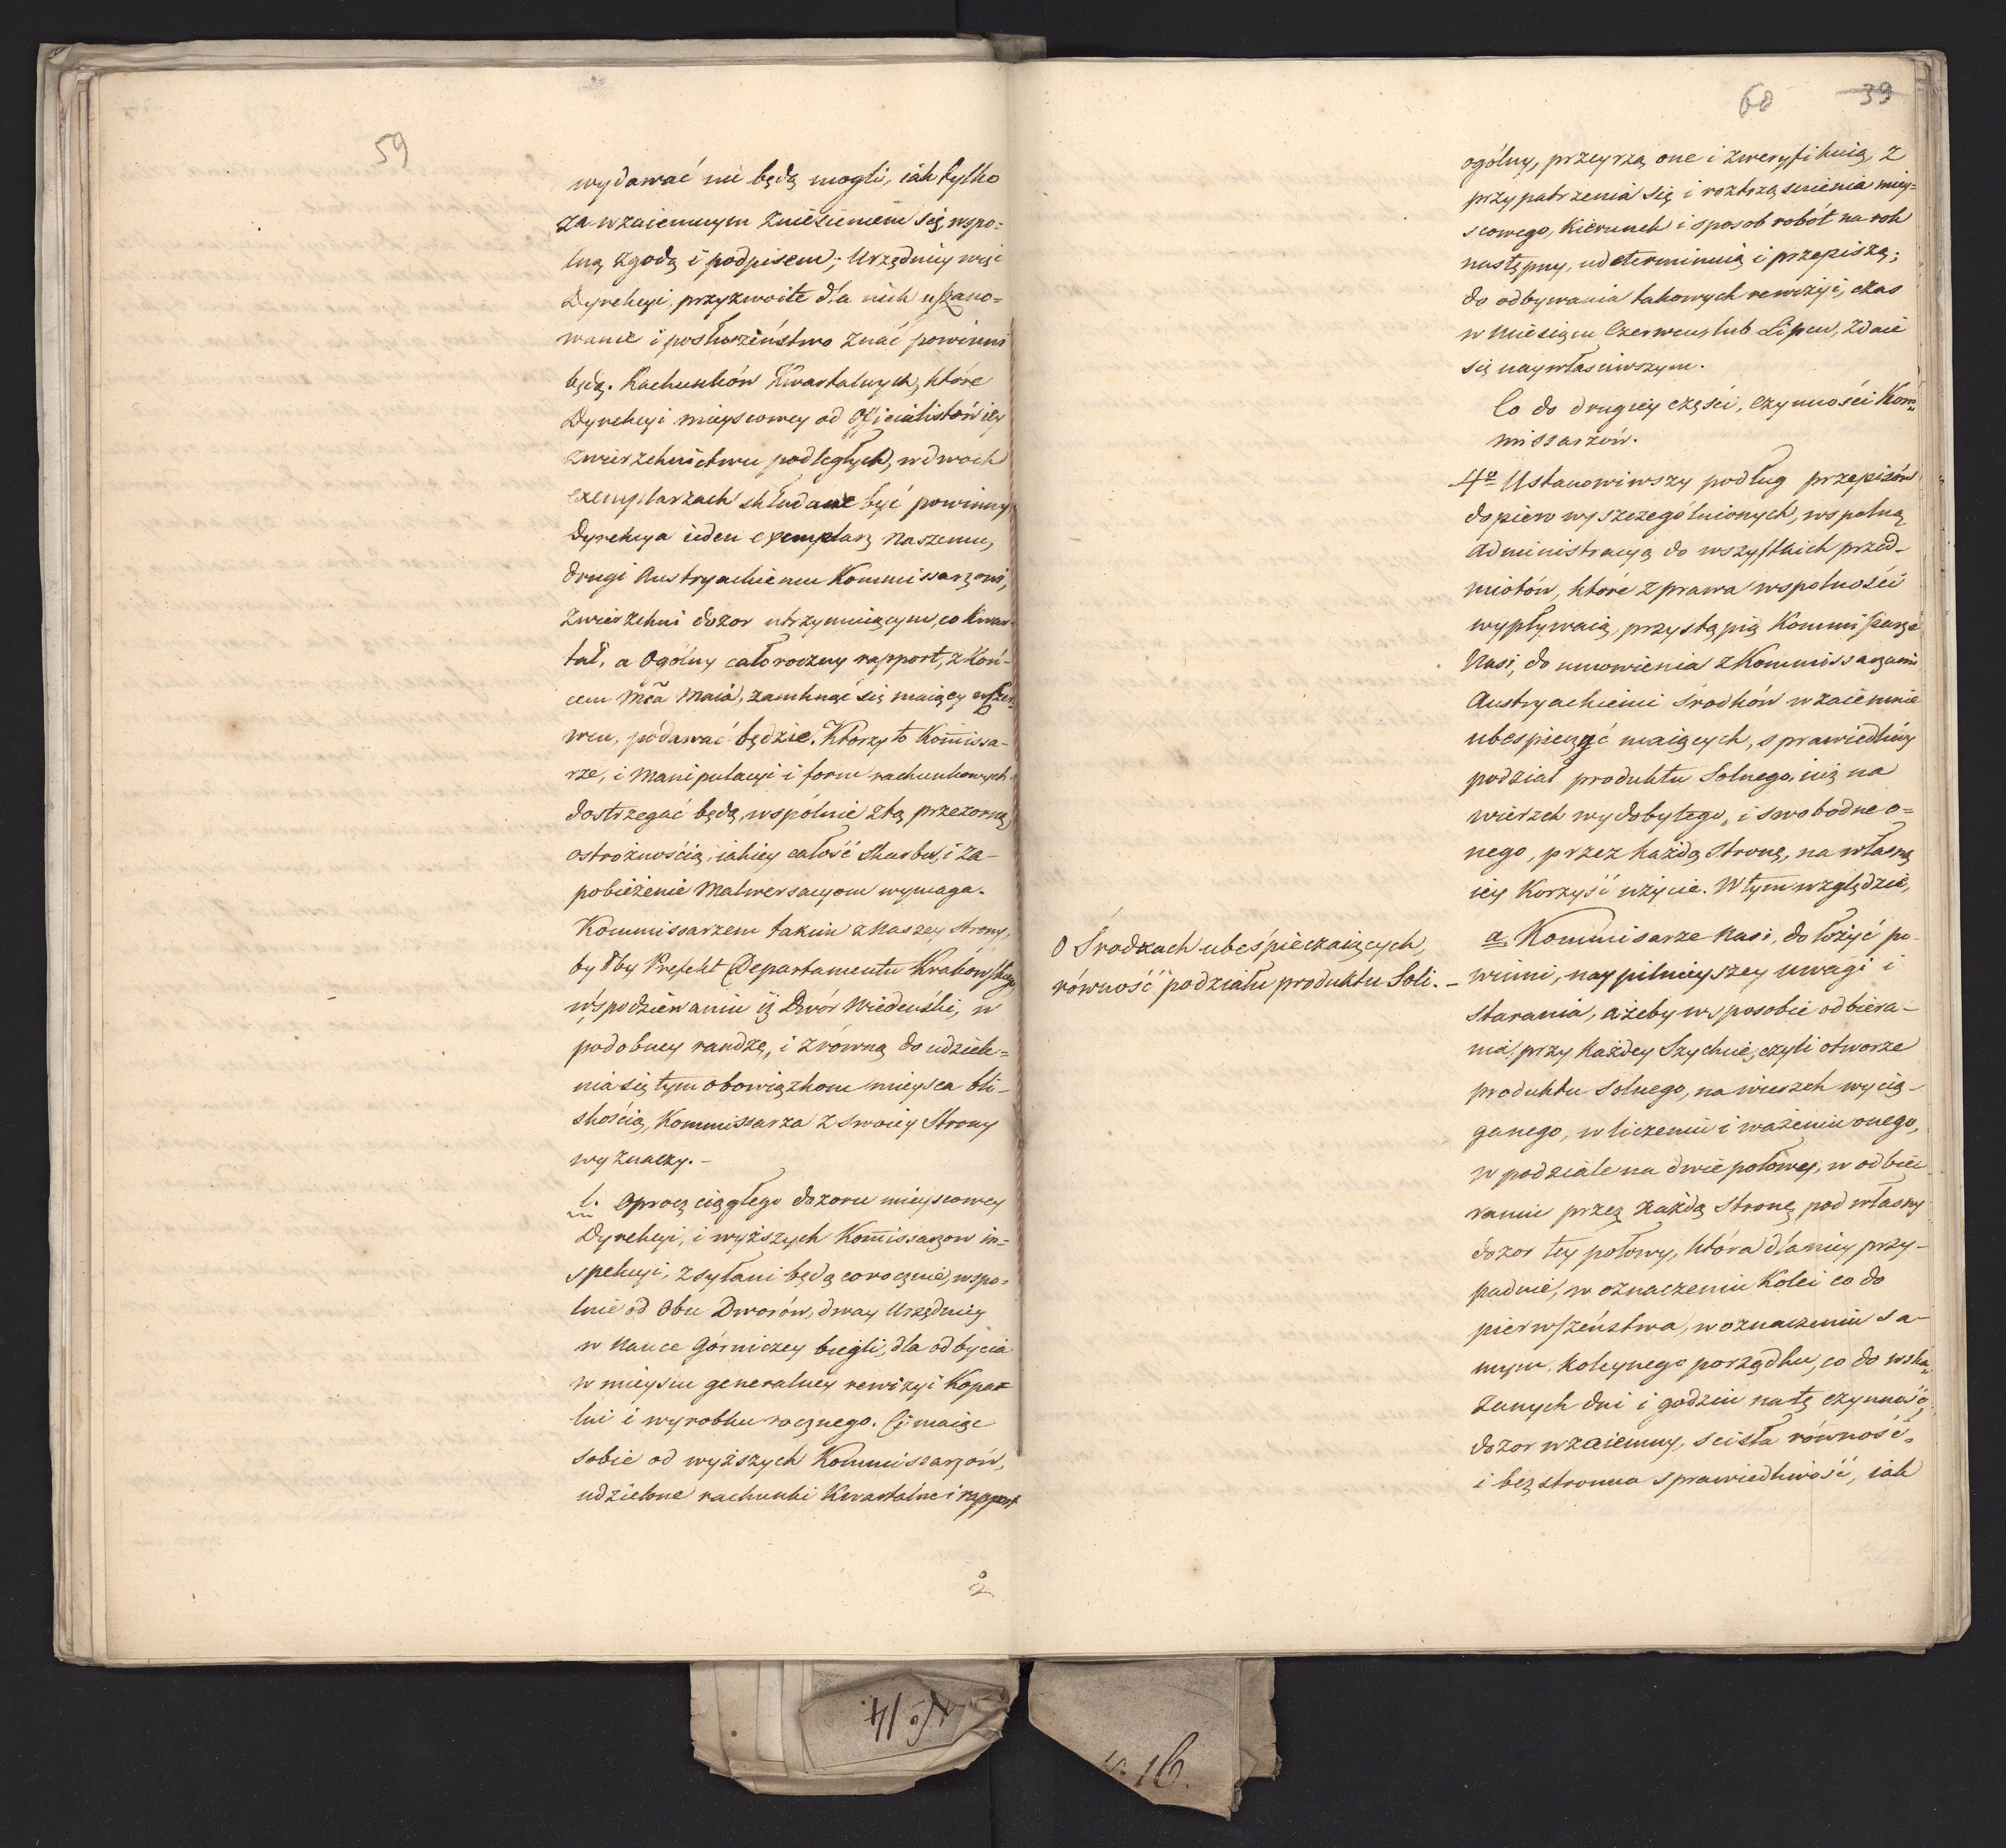 59
wydawać nie będą mogli, iak tylko
za wzaiemnym zniesieniem się, wspo=
lną zgodą i podpisem; Urzędnicy więc
Dyrekcyi, przyzwoite dla nich uszano=
wanie i posłuszeństwo znać powinni
będą. Rachunków Kwartalnych, które
Dyrekcyi mieyscowey od Officialistów iey
zwierzchnictwu podległych, w dwoch
exemplarzach składane być powinny
Dyrekcya ieden exemplarz Naszemu,
drugi Austryackiemu Kommissarzowi,
zwierzchni dozor utrzymuiącym, co Kwar-
tał, a Ogólny całoroczny rapport, z koń-
cem Mca Maia, zamknąć się maiący w Czer-
wcu, podawać będzie. Którzy to Kommissa-
rze, i Manipulacyi i form rachunkowych
dostrzegać będą, wspólnie z tą przezorną
ostrożnością, iakiey całość Skarbu, i za-
pobieżenie Malwersacyom wymaga.
Kommissarzem takim z Naszey strony,
byłby Prefekt Departamentu Krakowskiego
w spodziewaniu iż Dwór Wiedeński, w
podobney randze, i z równą do udziele=
nia się tym obowiązkom mieysca bli-
skością, Kommissarza z swoiey Strony
wyznaczy.-
l. Oprocz ciągłego dozoru mieyscowey
Dyrekcyi, i wyższych Kommissarzow in=
spekcyi, zsyłani będą corocznie, wspo=
lnie od Obu Dworów, dway Urzędnicy
w Nauce Górniczey biegli, dla odbycia
w mieyscu generalney rewizyi Kopa=
lni i wyrobku rocznego. Ci maiąc
sobie od wyższych Kommissarzów,
udzielone rachunki Kwartalne i rapport
2
60 39
ogólny, przeyrzą one i zweryfikuią, z
przypatrzenia się i roztrząśnienia miey=
scowego, Kierunek i sposob robót na rok
następny, udeterminuią i przepiszą;
do odbywania takowych rewizyi, czas
w Miesiącu Czerwcu, lub Lipcu, zdaie
się naywłaściwszym.
Co do drugiey części, czynności Kom=
missarzów.
4o Ustanowiwszy podług przepisów
dopiero wyszczególnionych, wspolną
administracyą do wszystkich przed-
miotów, które z prawa wspolności
wypływaią, przystąpią Kommissarze
Nasi, do umowienia z Kommissarzami
Austryackiemi środków wzaiemnie
ubespieczyć maiących, sprawiedliwy
podział produktu Solnego, iuż na
wierzch wydobytego, i swobodne o=
nego, przez każdą Stronę, na własną
iey Korzyść użycie. W tym względzie,
O Środkach ubeśpieczaiących,
równość podziału produktu Soli. -
a. Kommisarze Nasi, dołożyć po-
winni, naypilnieyszey uwagi i
starania, ażeby w sposobie odbiera-
nia, przy każdey Szychcie, czyli otworze
produktu Solnego, na wierzch wycią-
ganego, w liczeniu i ważeniu onego,
w podziale na dwie połowy, w odbie
raniu przez każdą Stronę pod własny
dozor tey połowy, która dla niey przy-
padnie, w oznaczeniu Kolei co do
pierwszeństwa, w oznaczeniu sa-
mym kolejnego porządku, co do wska=
zanych dni i godzin na tę czynność,
dozor wzaiemny, scisła równość,
i bezstronna sprawiedliwość, iak
No 14.
16.